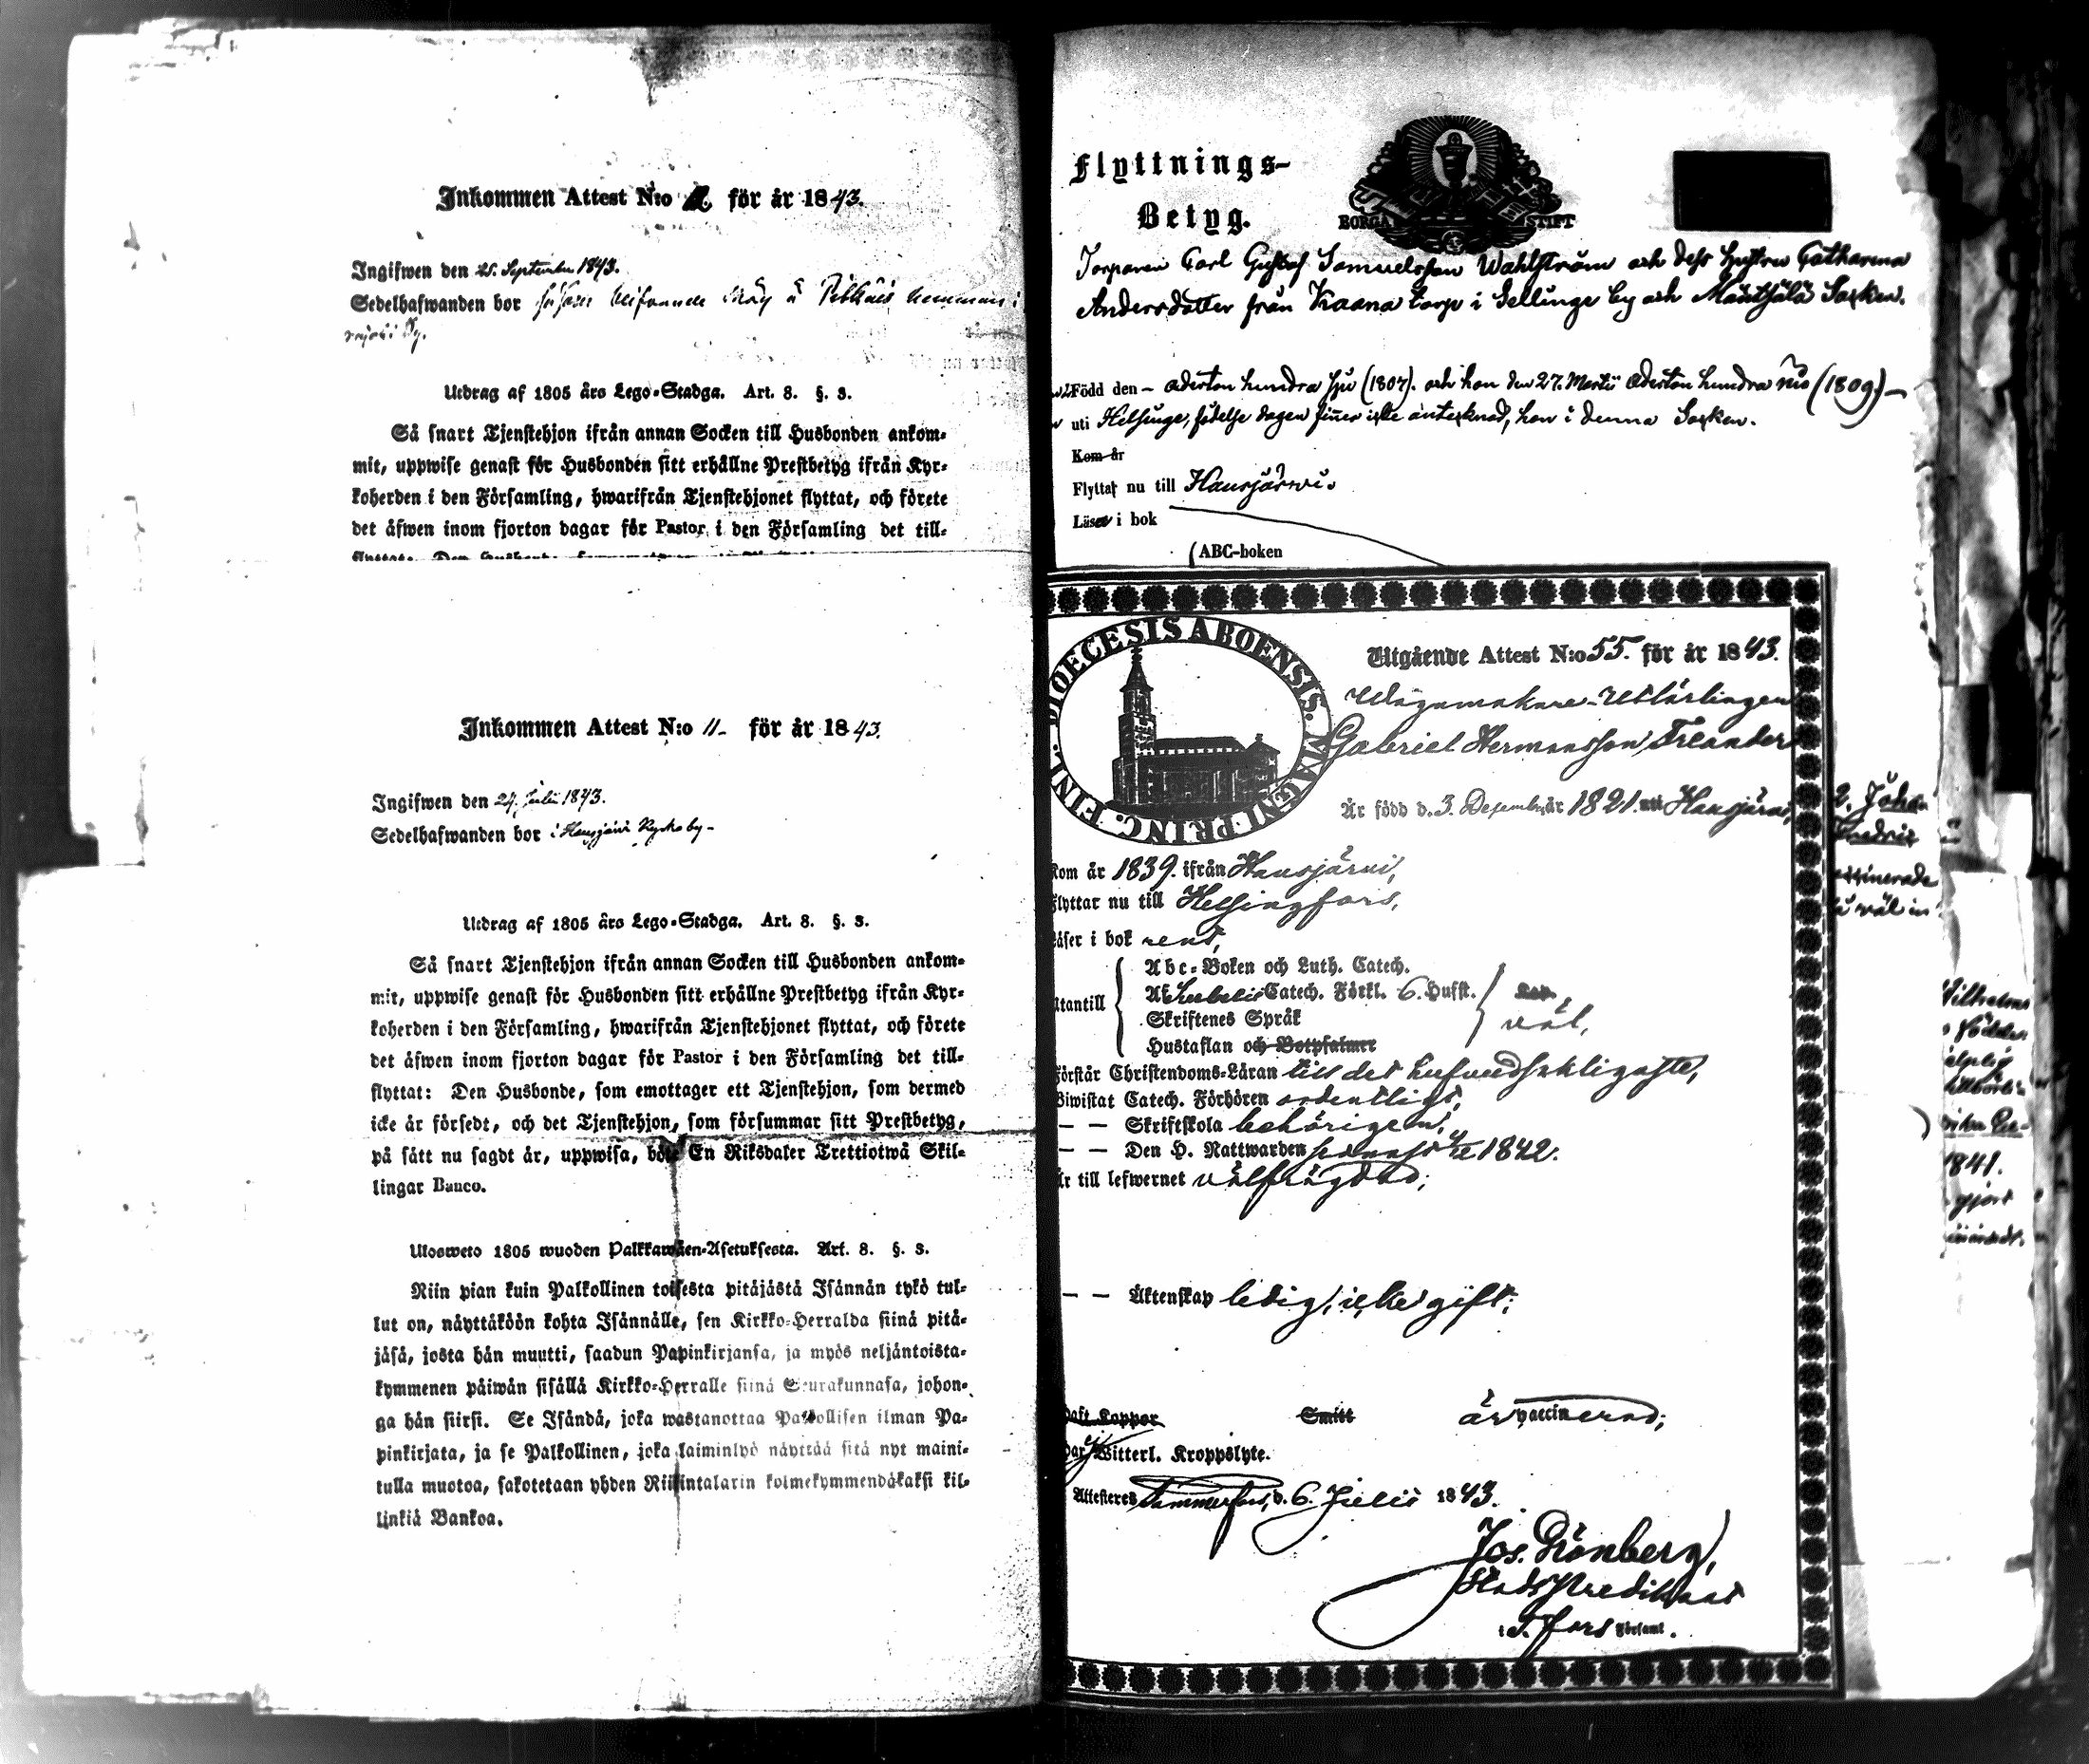 Inkommen Attest N:o för år 1843.
Ingifwen den 25. September 1843.
Sedelhafwanden bor
by.
Utdrag af 1805 års Lego-Stadga. Art. 8. §. 3.
Så snart Tjenstehjon ifrån annan Socken till Husbonden ankom-
mit, uppwise genast för Husbonden sitt erhållne Prestbetyg ifrån Kyr-
koherden i den Församling, hwarifrån Tjenstehjonet flyttat, och förete
det äfwen inom fjorton dagar för Pastor i den Församling det till-
Inkommen Attest N:o 11 för år 1843.
Ingifwen den 24. Julii 1843.
Sedelhafwanden bor i Hausjärvi Ryckä by
Utdrag af 1805 års Lego-Stadga. Art. 8. §. 3.
Så snart Tjenstehjon ifrån annan Socken till Husbonden ankom-
mit, uppwise genast för Husbonden sitt erhållne Prestbetyg ifrån Kyr-
koherden i den Församling, hwarifrån Tjenstehjonet flyttat, och förete
det äfwen inom fjorton dagar för Pastor i den Församling det till-
flyttat: Den Husbonde, som emottager ett Tjenstehjon, som dermed
icke är försedt, och det Tjenstehjon, som försummar sitt Prestbetyg,
på sätt nu sagdt är, uppwisa, böte En Riksdaler Trettiotwå Skil-
lingar Banco.
Ulosweto 1805 wuoden Palkkawäen-Asetuksesta. Art. 8. §. 3.
Niin pian kuin Palkollinen toisesta pitäjästä Isännän tykö tul-
lut on, näyttäköön kohta Isännälle, sen Kirkko-Herralda siinä pitä-
jäsä, josta hän muutti, saadun Papinkirjansa, ja myös neljäntoista-
kymmenen päiwän sisällä Kirkko-Herralle siinä Seurakunnasa, johon-
ga hän siirsi. Se Isändä, joka wastanottaa Palkollisen ilman Pa-
pinkirjata, ja se Palkollinen, joka laiminlyö näyttää sitä nyt maini-
tulla muotoa, sakotetaan yhden Riikintalarin kolmekymmendäkaksi kil-
linkiä Bankoa.
Flyttnings-
Betyg.
BORGÅ STIFT
Torparen Carl Gustaf Samuelsson Wahlström och dess hustru Catharina
Andersdotter från Kaana torp i Sellinge by och Mäntsälä Socken.
Född den – aderton hundra sju (1807). och hon den 27. Martii aderton hundra nio (1809) –
uti Helsinge, födelse dagen finnes icke antecknad, hon i denna Socken.
Kom år
Flyttar nu till Hausjärvi.
Läser i bok
ABC-boken
DIOECESIS ABOENSIS. MAGNI PRINC. FINL.
Utgående Attest N:o 55. för år 1843.
Wagnmakare-Utlärlingen
Gabriel Hermansson Frlander
Är född d. 3. Decemb. år 1821. uti Hausjärvi,
Kom år 1839. ifrån Hausjärvi,
Flyttar nu till Helsingfors,
Läser i bok rent,
Utantill
Abc-Boken och Luth. Catech.
Af Svebelii Catech. Förkl. 6. Hufst.
Skriftenes Språk
Hustaflan och Botpsalmer
väl,
Förstår Christendoms-Läran till det hufvudsakligaste,
Biwistat Catech. Förhören ordentligt,
— — Skriftskola behörigen,
— — Den H. Nattwarden senast 1842.
Är till lefwernet välfrägdad;
— — Äktenskap ledig, icke gift;
Haft Koppor Smitt är vaccinerad;
Har Witterl. Kroppslyte.
Attesteres Tammerfors, d. 6. Julii 1843.
Jos. Grönberg,
Stads Predikant
i T. fors Församl.
2. Johan
Fredric
väl in
1841.
gjort